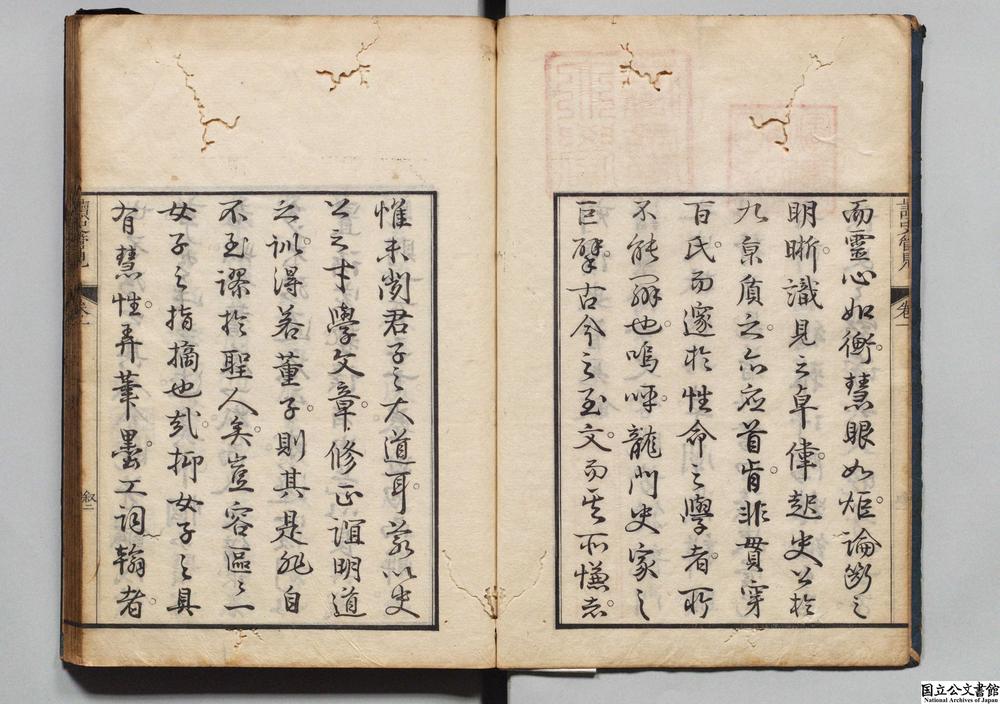 而靈心如衡。慧眼如炬。論斷之
明晰。識見之卓偉。起史公於
九泉質之。亦應首肯。非貫穿
百氏。而邃於性命之學者。所
不能辨也。嗚呼。龍門史家之
巨擘。古今之至文。而其所慊志。
讀史管見
卷一
敘
惟未聞君子之大道耳。若以史
公之才學文章。修正誼明道
之訓。得若董子。則其是非自
不至謬於聖人矣。豈容區々一
女子之指摘也哉。抑女子之具
有慧性。弄筆墨。工詞翰者。
讀史管見
卷一
敘二
国立公文書館
National Archives of Japan